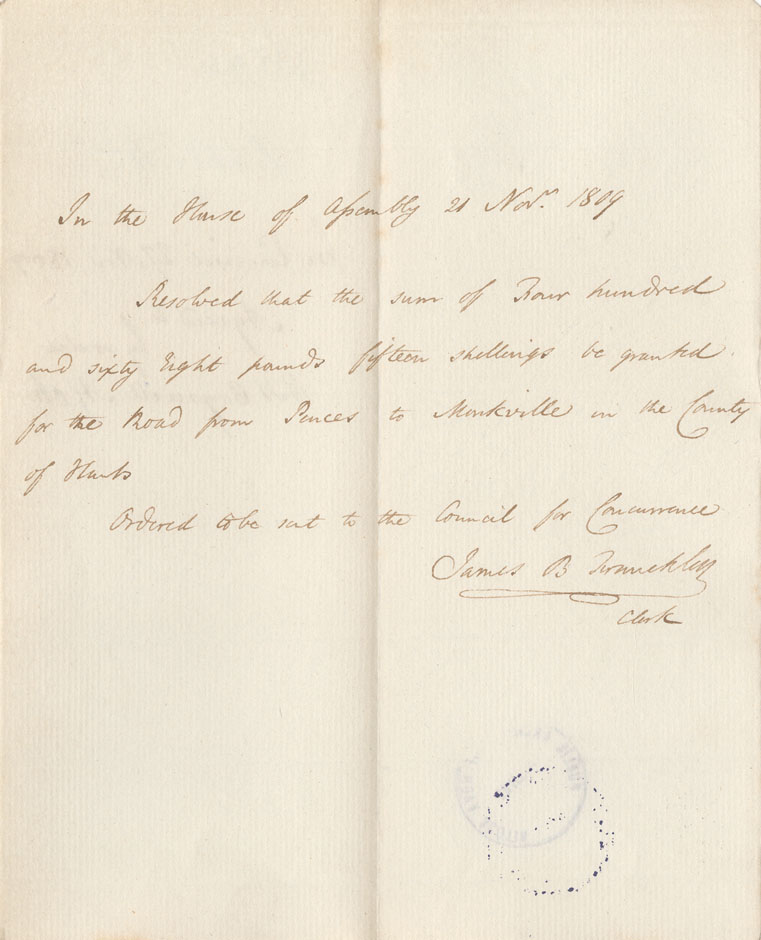 In the House of Assembly 21 Novr. 1809
Resolved that the sum of Four hundred
and sixty Eight pounds fifteen shillings be granted
for the Road from Pences to Monkville in the County
of Hants
Ordered to be sent to the Council for Concurrence
James B Franckling
Clerk